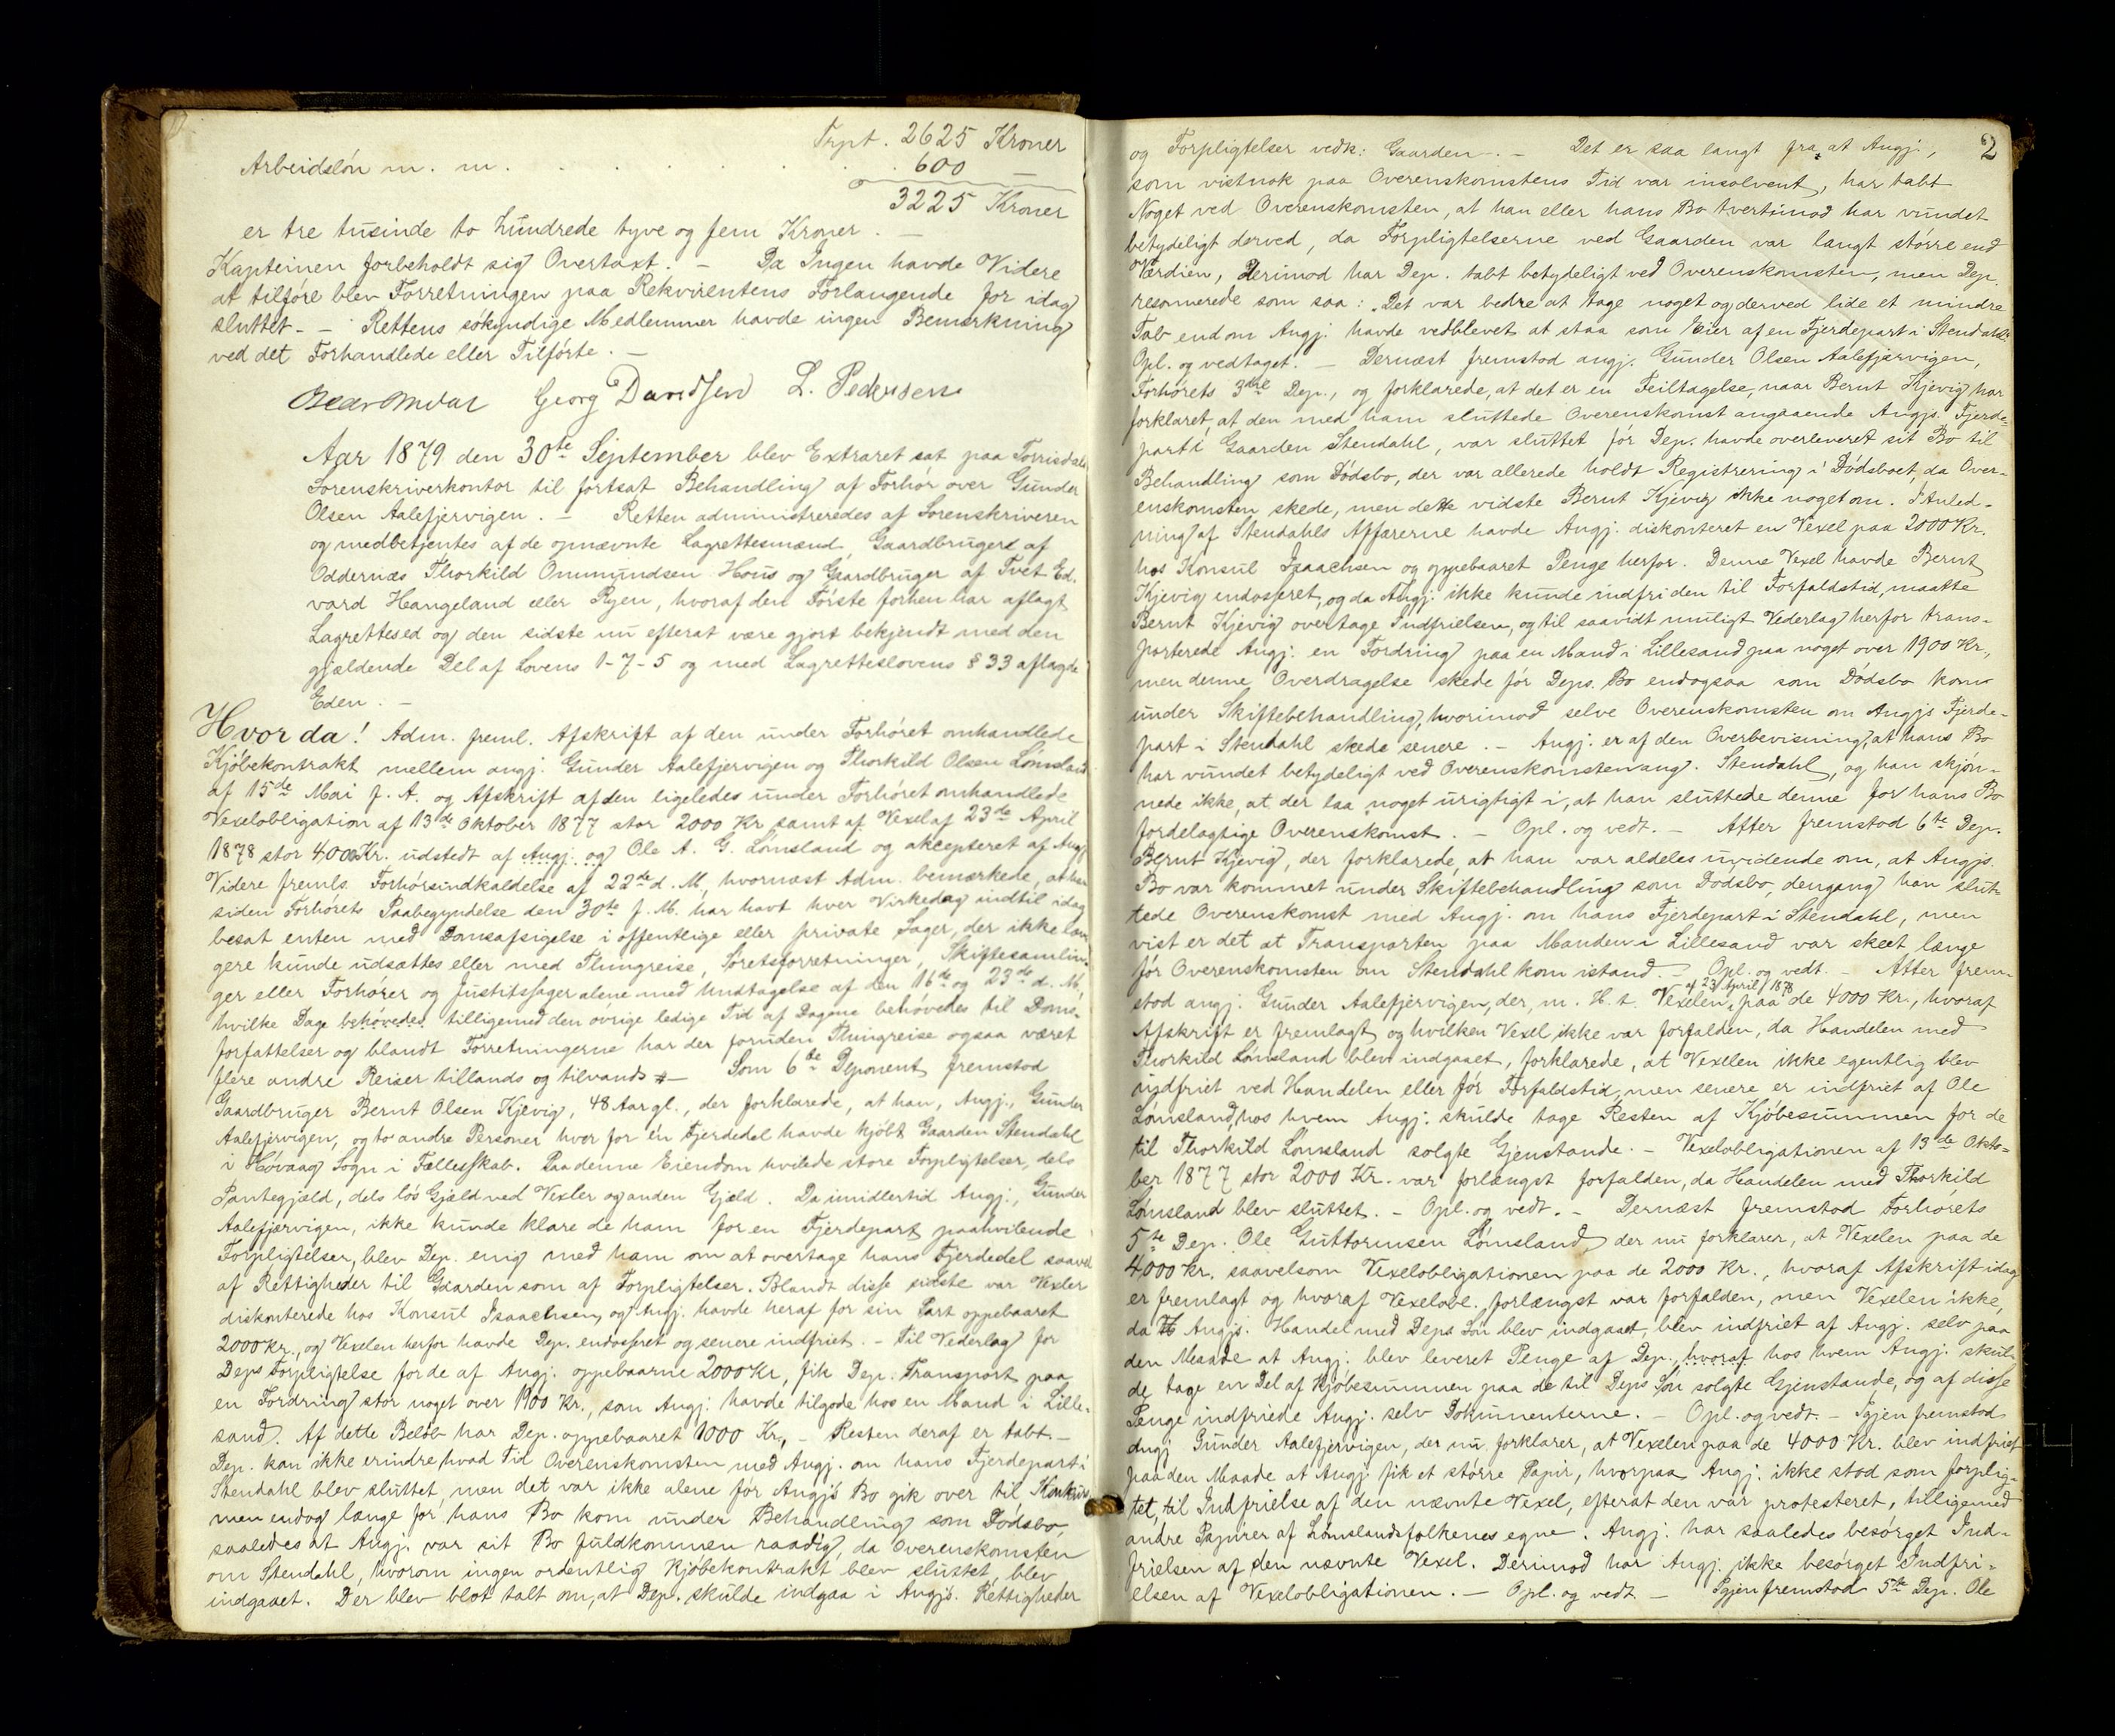 Trpt. 2625 Kroner
Arbeidsløn m. m. . . . . . . 600 —
3225 Kroner
er tre tusinde to hundrede tyve og fem Kroner. —
Kapteinen forbeholdt sig Overtaxt. — Da Ingen havde Videre
at tilføre blev Forretningen paa Rekvirentens Forlangende for idag
sluttet. — Rettens søkyndige Medlemmer havde ingen Bemærkning
ved det Forhandlede eller Tilførte. —
Georg Davidsen L. Pedersen
Aar 1879 den 30te September blev Extraret sat paa Torrisdals
Sorenskriverkontor til fortsat Behandling af Forhør over Gunder
Olsen Aalefjervigen. — Retten administreredes af Sorenskriveren
og medbetjentes af de opnævnte Lagrettesmænd, Gaardbruger af
Oddernæs Thorkild Ommundsen Hous og Gaardbruger af Tvet Ed-
vard Haugeland eller Ryen, hvoraf den Første forhen har aflagt
Lagrettesed og den sidste nu efterat være gjort bekjendt med den
gjældende Del af Lovens 1-7-5 og med Lagretteslovens § 33 aflagde
Eden. —
Hvor da! Adm. freml. Afskrift af den under Forhøret omhandlede
Kjøbekontrakt mellem angj. Gunder Aalefjervigen og Thorkild Olsen Lømsland
af 15de Mai f. A. og Afskrift af den ligeledes under Forhøret omhandlede
Vexelobligation af 13de Oktober 1877 stor 2000 Kr samt af Vexel af 23de April
1878 stor 4000 Kr. udstedt af Angj. og Ole A. G. Lømsland og akcepteret af Angj
Videre fremls. Forhørsindkaldelse af 22de d. M., hvornæst Adm. bemærkede, at han
siden Forhørets Paabegyndelse den 30te f. M. har havt hver Virkedag indtil idag
besat enten med Domsafsigelse i offentlige eller private Sager, der ikke læn
gere kunde udsættes eller med Thingreise, Søretsforretninger, Skiftesamlin-
ger eller Forhører og Justitssager alene med Undtagelse af den 16de og 23de d. M,
hvilke Dage behøvedes tilligemed den øvrige ledige Tid af Dagene behøvedes til Doms-
forfattelser og blandt Forretningerne har der foruden Thingreise ogsaa været
flere andre Reiser tillands og tilvands — Som 6te Deponent fremstod
Gaardbruger Bernt Olsen Kjevig, 48 Aar gl., der forklarede, at han, Angj., Gunder
Aalefjervigen, og to andre Personer hver for én Fjerdedel havde kjøbt Gaarden Stendahl
i Høvaag Sogn i Fællesskab. Paa denne Eiendom hvilede store Forpligtelser, dels
Pantegjæld, dels løs Gjæld ved Vexler og anden Gjæld. Da imidlertid Angj., Gunder
Aalefjærvigen, ikke kunde klare de ham for en Fjerdepart paahvilende
Forpligtelser, blev Dep. enig med ham om at overtage hans Fjerdedel saavel
af Rettigheder til Gaarden som af Forpligtelser. Blandt disse sidste var Vexler
diskonterede hos Konsul Isaachsen, og Angj. havde heraf for sin Part oppebaaret
2000 Kr., og Vexelen herfor havde Dep. endosseret og senere indfriet. — Til Vederlag for
Deps Forpligtelse for de af Angj. oppebaarne 2000 Kr, fik Dep. Transport paa
en Fordring stor noget over 1900 Kr., som Angj. havde tilgode hos en Mand i Lille-
sand. Af dette Beløb har Dep. oppebaaret 1000 Kr., — Resten deraf er tabt. —
Dep. kan ikke erindre, hvad Tid Overenskomsten med Angj. om hans Fjerdepart i
Stendahl blev sluttet, men det var ikke alene før Angjs Bo gik over til Konkurs
men endog længe før hans Bo kom under Behandling som Dødsbo,
saaledes at Angj. var sit Bo fuldkommen raadig, da Overenskomsten
om Stendahl, hvorom ingen ordentlig Kjøbekontrakt blev sluttet, blev
indgaaet. Der blev blot talt om, at Dep. skulde indgaa i Angjs. Rettigheder
2
og Forpligtelser vedk: Gaarden. — Det er saa langt fra, at Angj.,
som vistnok paa Overenskomstens Tid var insolvent, har tabt
Noget ved Overenskomsten, at han eller hans Bo tvertimod har vundet
betydeligt derved, da Forpligtelserne ved Gaarden var langt større end
Værdien, Derimod har Dep. tabt betydeligt ved Overenskomsten, men Dep.
resonnerede som saa: „Det var bedre at tage noget og derved lide et mindre
Tab end om Angj. havde vedblevet at staa som Eier af en Fjerdepart i Stendahl."
Opl. og vedtaget. — Dernæst fremstod angj. Gunder Olsen Aalefjærvigen,
Forhørets 3die Dep., og forklarede, at det er en Feiltagelse, naar Bernt Kjevig har
forklaret, at den med ham sluttede Overenskomst angaaende Angjs. Fjerde-
part i Gaarden Stendahl, var sluttet før Dep. havde overleveret sit Bo til
Behandling som Dødsbo, der var allerede holdt Registrering i Dødsboet, da Over-
enskomsten skede, men dette vidste Bernt Kjevig ikke noget om. I Anled-
ning af Stendahls Affærerne havde Angj. diskonteret en Vexel paa 2000 Kr.
hos Konsul Isaachsen og oppebaaret Penge herfor. Denne Vexel havde Bernt
Kjevig endosseret, og da Angj. ikke kunde indfri den til Forfaldstid, maatte
Bernt Kjevig overtage Indfrielsen, og til saavidt muligt Vederlag herfor trans-
porterede Angj. en Fordring paa en Mand i Lillesand paa noget over 1900 Kr,
men denne Overdragelse skede før Deps. Bo endogsaa som Dødsbo kom
under Skiftebehandling, hvorimod selve Overenskomsten om Angjs Fjerde-
part i Stendahl skede senere. — Angj. er af den Overbevisning, at hans Bo
har vundet betydeligt ved Overenskomsten ang. Stendahl, og han skjøn-
nede ikke, at der laa noget urigtigt i, at han sluttede denne for hans Bo
fordelagtige Overenskomst. — Opl. og vedt. — Atter fremstod 6te Dep.
Bernt Kjevig, der forklarede, at han var aldeles uvidende om, at Angjs.
Bo var kommet under Skiftebehandling som Dødsbo, dengang han slut-
tede Overenskomst med Angj. om hans Fjerdepart i Stendahl, men
vist er det at Transporten paa Manden i Lillesand var skeet længe
før Overenskomsten om Stendahl kom istand. — Opl. og vedt. — Atter frem-
stod angj. Gunder Aalefjervigen, der, m. H. t. Vexelen af 23 April 1878 paa de 4000 Kr., hvoraf
Afskrift er fremlagt og hvilken Vexel ikke var forfalden, da Handelen med
Thorkild Lømsland blev indgaaet, forklarede, at Vexelen ikke egentlig blev
indfriet ved Handelen eller før Forfaldstid, men senere er indfriet af Ole
Lømsland, hos hvem Angj. skulde tage Resten af Kjøbesummen for de
til Thorkild Lømsland solgte Gjenstande. — Vexelobligationen af 13de Okto-
ber 1877 stor 2000 Kr. var forlængst forfalden, da Handelen med Thorkild
Lømsland blev sluttet. — Opl. og vedt. — Dernæst fremstod Forhørets
5te Dep. Ole Guttormsen Lømsland, der nu forklarer, at Vexelen paa de
4000 Kr. saavelsom Vexelobligationen paa de 2000 Kr., hvoraf Afskrift idag
er fremlagt og hvoraf Vexelobl. forlængst var forfalden, men Vexelen ikke,
da Angjs. Handel med Deps Søn blev indgaaet, blev indfriet af Angj. selv paa
den Maade at Angj. blev leveret Penge af Dep., hvoraf hos hvem Angj. skul-
de tage en Del af Kjøbesummen paa de til Deps Søn solgte Gjenstande, og af disse
Penge indfriede Angj. selv Dokumenterne. — Opl. og vedt. — Igjen fremstod
Angj Gunder Aalefjervigen, der nu forklarer, at Vexelen paa de 4000 Kr. blev indfriet
paa den Maade at Angj. fik et større Papir, hvorpaa Angj. ikke stod som forplig-
tet, til Indfrielse af den nævnte Vexel, efterat den var protesteret, tilligemed
andre Papirer af Lømslandsfolkenes egne. Angj. har saaledes besørget Ind-
frielsen af den nævnte Vexel. Derimod har Angj. ikke besørget Indfri-
elsen af Vexelobligationen. — Opl. og vedt — Igjen fremstod 5te Dep. Ole